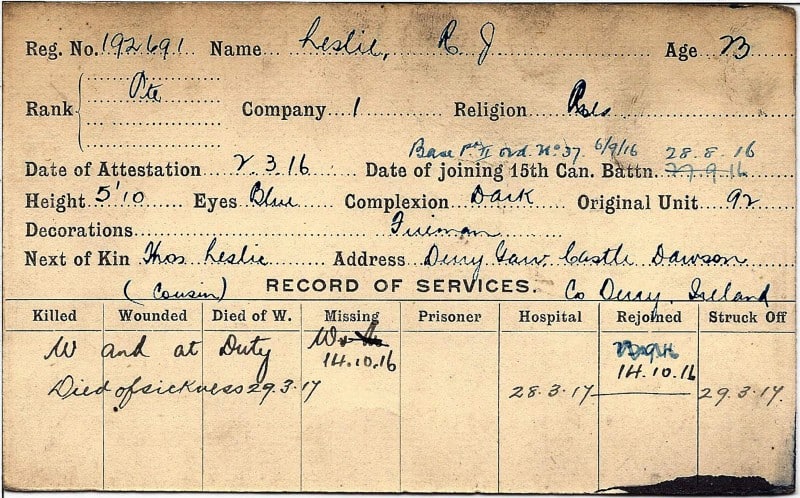 Reg. No. 192691 Name Leslie, R J Age 23
Rank Pte Company 1 Religion Pres
Base Pt II Ord. No 37 6/9/16 28.8.16
Date of Attestation 2.3.16 Date of joining 15th Can. Battn. 27.9.16
Height 5'10 Eyes Blue Complexion Dark Original Unit 92
Decorations Fireman
Next of Kin Thos Leslie Address Derry Gaw Castle Dawson
(Cousin) RECORD OF SERVICES. Co Derry, Ireland
Killed Wounded Died of W. Missing Prisoner Hospital Rejoined Struck Off
W and at Duty
14.10.16 14.10.16
Died of sickness 29.3.17 28.3.17 29.3.17.